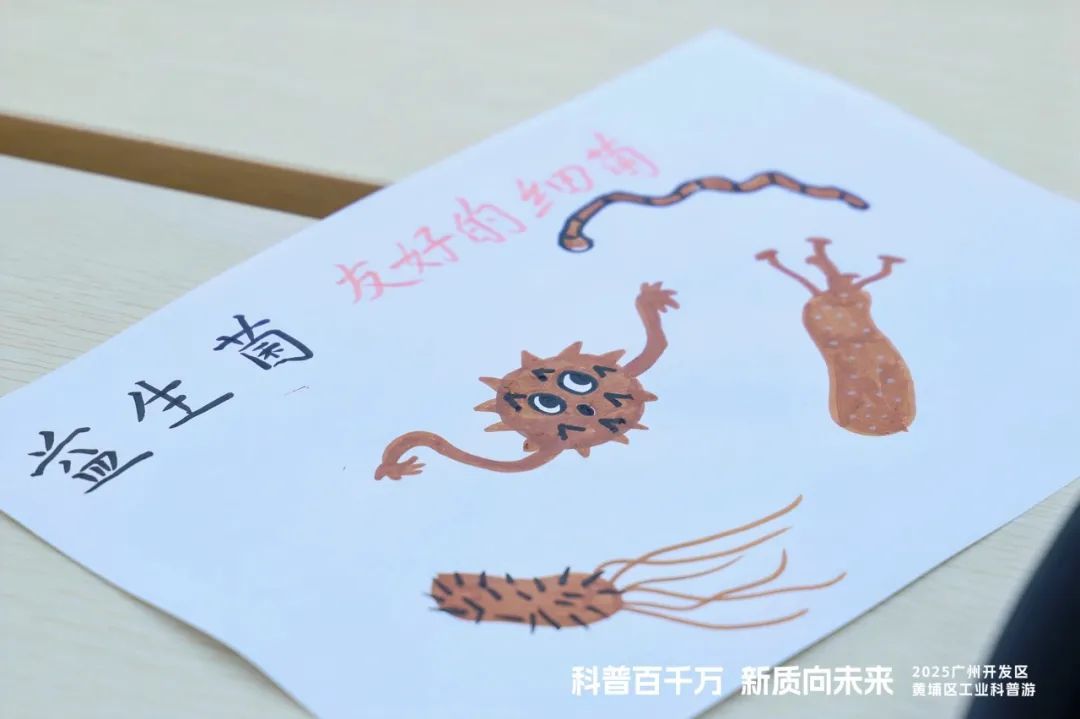 友好的细菌
益生菌
科普百千万 新质向未来
2025广州开发区
黄埔区工业科普游